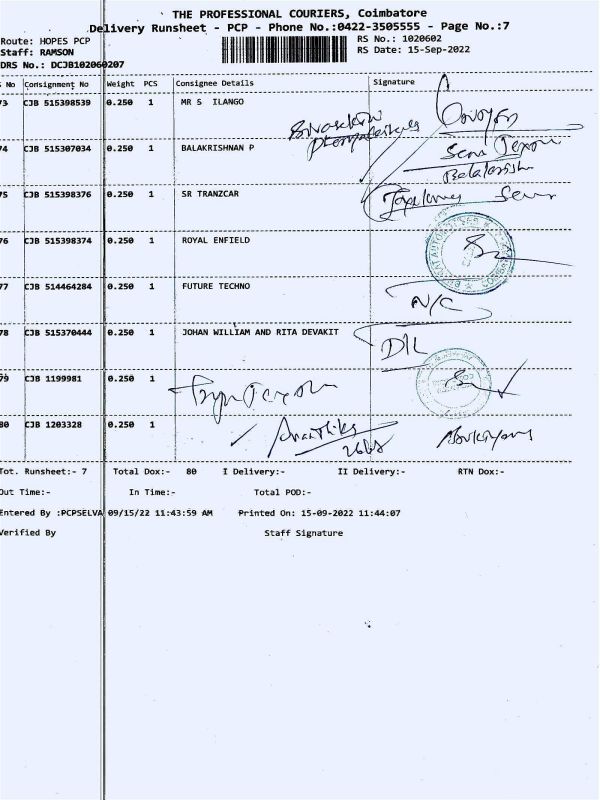 THE PROFESSIONAL COURIERS, Coimbatore
Delivery Runsheet - PCP - Phone No.:0422-3505555 - Page No.:7
Route: HOPES PCP RS No.: 1020602
Staff: RAMSON RS Date: 15-Sep-2022
DRS No.: DCJB102060207
No Consignment No Weight PCS Consignee Details Signature
73 CJB 515398539 0.250 1 MR S ILANGO
74 CJB 515307034 0.250 1 BALAKRISHNAN P
75 CJB 515398376 0.250 1 SR TRANZCAR
76 CJB 515398374 0.250 1 ROYAL ENFIELD
77 CJB 514464284 0.250 1 FUTURE TECHNO
N/C
78 CJB 515370444 0.250 1 JOHAN WILLIAM AND RITA DEVAKIT
D/L
79 CJB 1199981 0.250 1
80 CJB 1203328 0.250 1
Tot. Runsheet:- 7 Total Dox:- 80 I Delivery:- II Delivery:- RTN Dox:-
Out Time:- In Time:- Total POD:-
Entered By :PCPSELVA 09/15/22 11:43:59 AM Printed On: 15-09-2022 11:44:07
Verified By Staff Signature